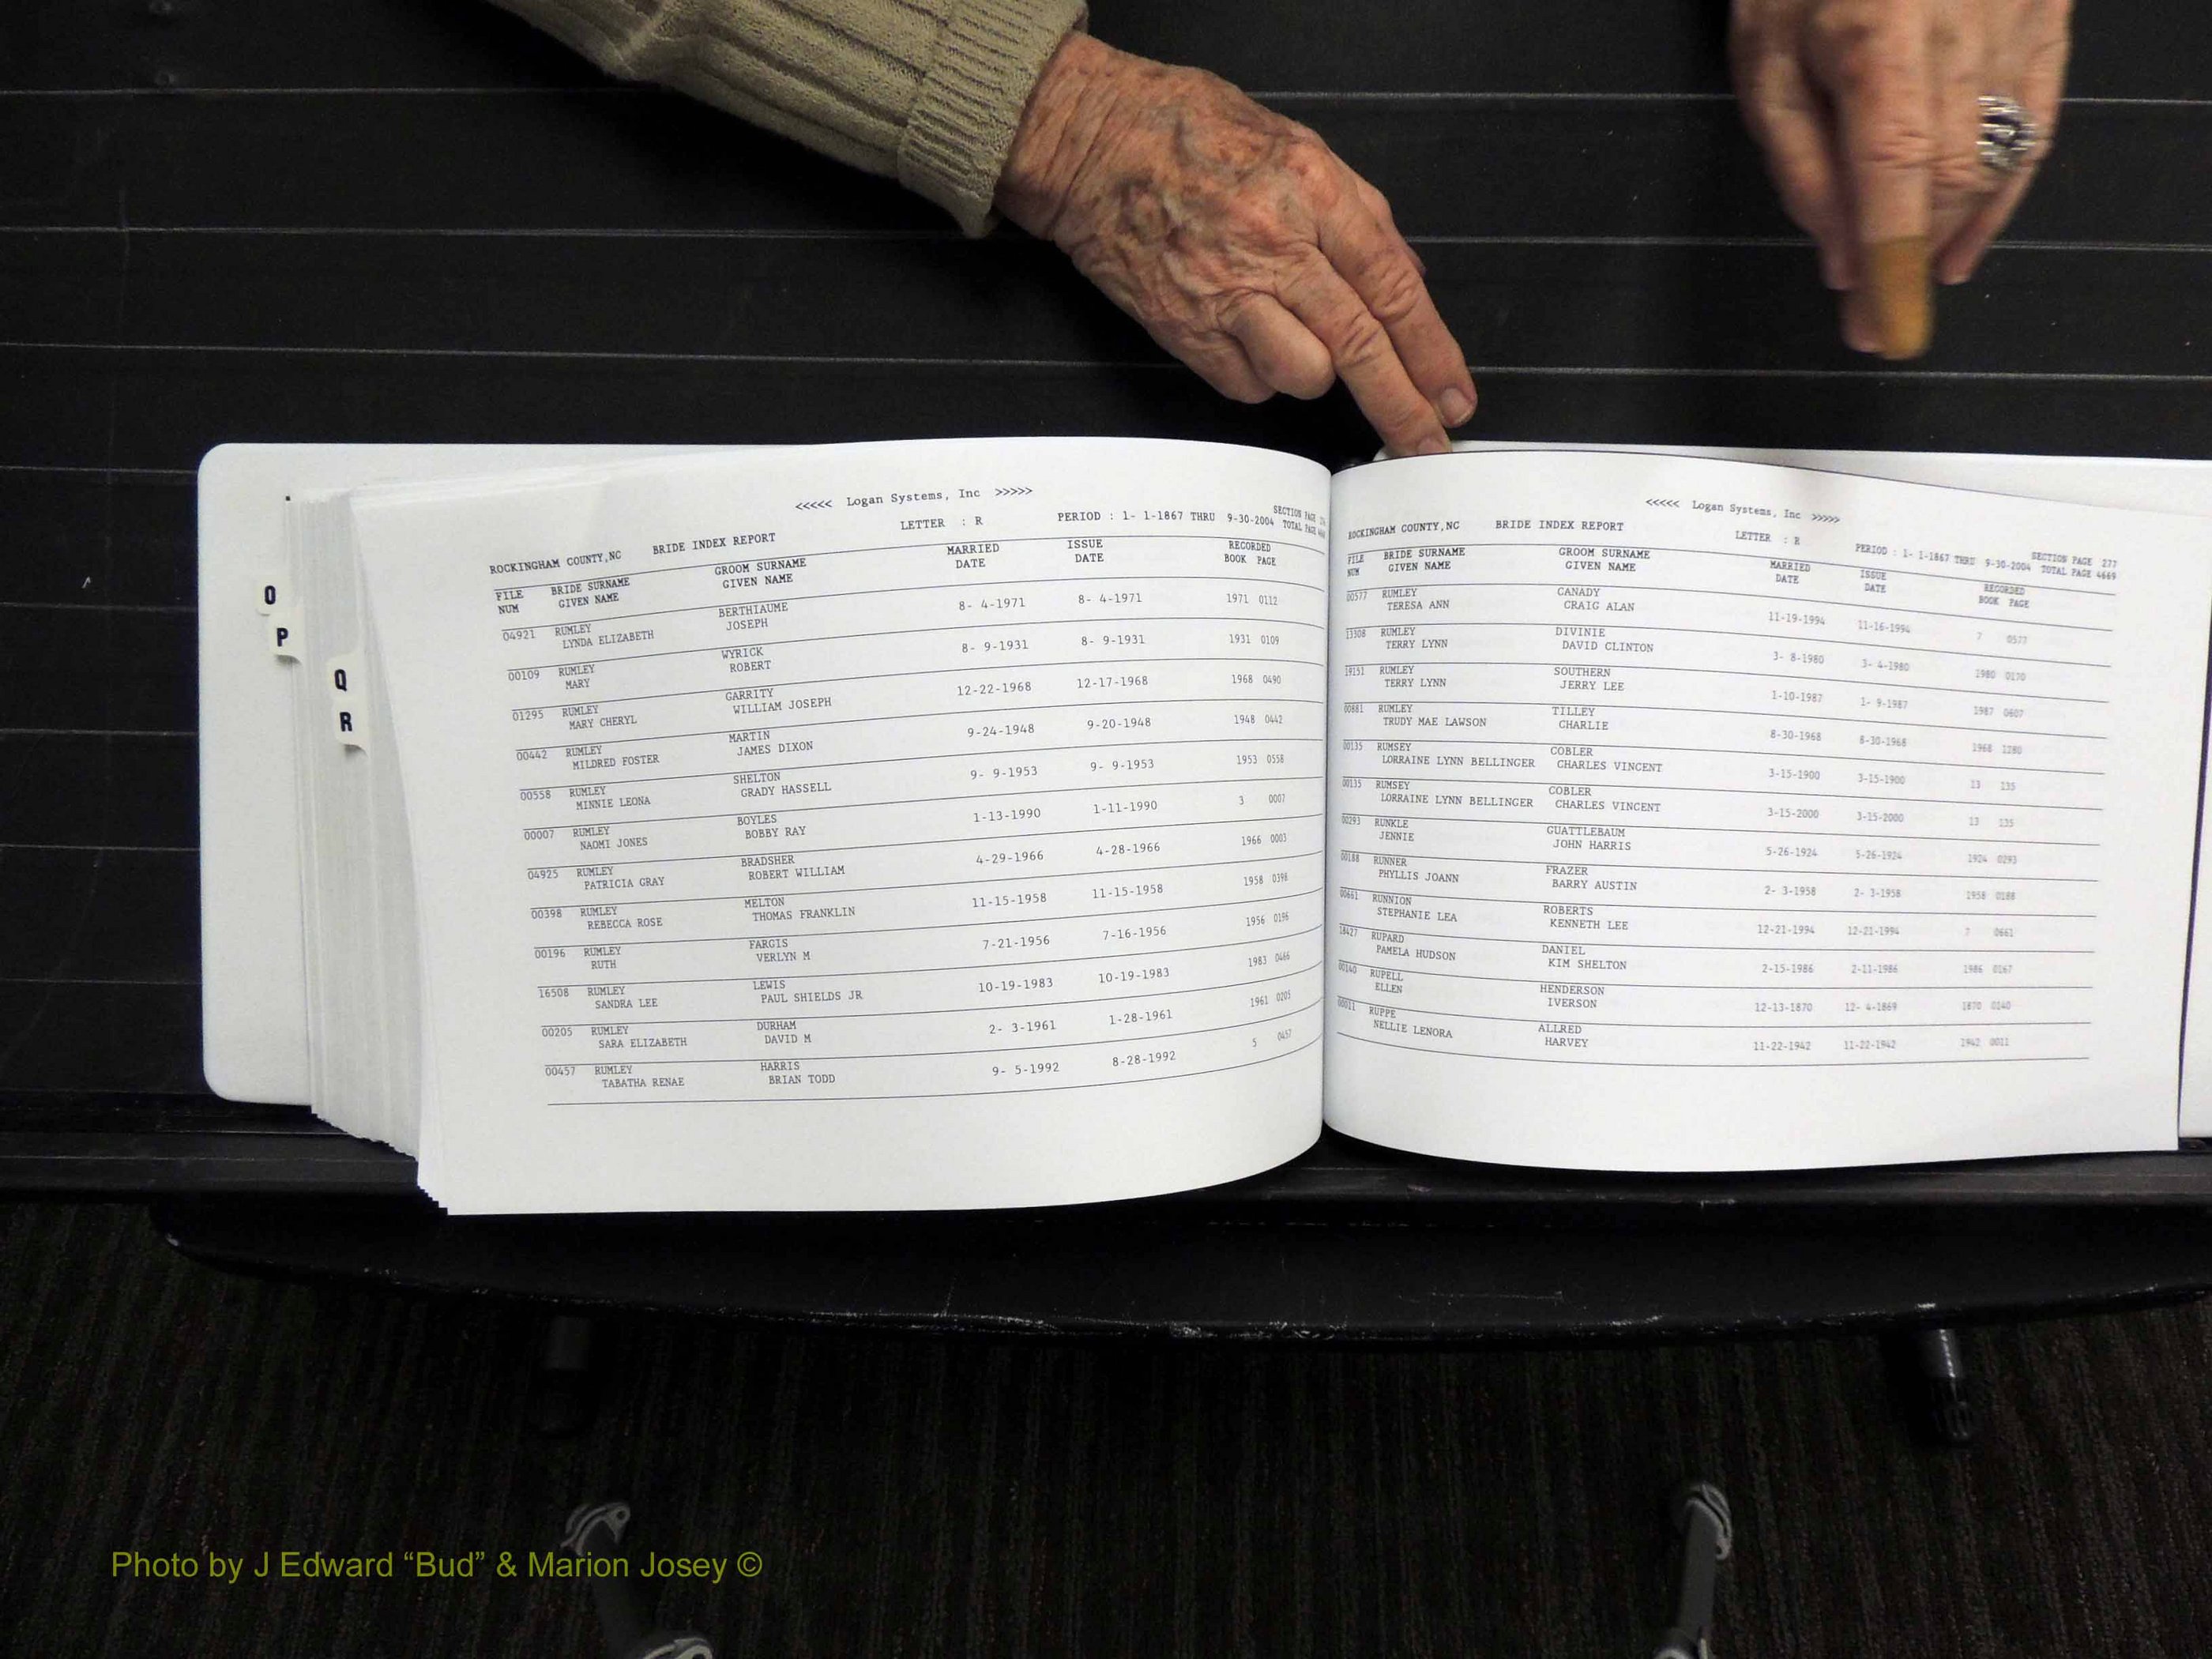 O
P
Q
R
<<<<< Logan Systems, Inc >>>>>
ROCKINGHAM COUNTY,NC BRIDE INDEX REPORT LETTER : R PERIOD : 1- 1-1867 THRU 9-30-2004 SECTION PAGE
TOTAL PAGE
FILE BRIDE SURNAME GROOM SURNAME MARRIED ISSUE RECORDED
NUM GIVEN NAME GIVEN NAME DATE DATE BOOK PAGE
04921 RUMLEY BERTHIAUME 8- 4-1971 8- 4-1971 1971 0112
LYNDA ELIZABETH JOSEPH
00109 RUMLEY WYRICK 8- 9-1931 8- 9-1931 1931 0109
MARY ROBERT
01295 RUMLEY GARRITY 12-22-1968 12-17-1968 1968 0490
MARY CHERYL WILLIAM JOSEPH
00442 RUMLEY MARTIN 9-24-1948 9-20-1948 1948 0442
MILDRED FOSTER JAMES DIXON
00558 RUMLEY SHELTON 9- 9-1953 9- 9-1953 1953 0558
MINNIE LEONA GRADY HASSELL
00007 RUMLEY BOYLES 1-13-1990 1-11-1990 3 0007
NAOMI JONES BOBBY RAY
04925 RUMLEY BRADSHER 4-29-1966 4-28-1966 1966 0003
PATRICIA GRAY ROBERT WILLIAM
00398 RUMLEY MELTON 11-15-1958 11-15-1958 1958 0398
REBECCA ROSE THOMAS FRANKLIN
00196 RUMLEY FARGIS 7-21-1956 7-16-1956 1956 0196
RUTH VERLYN M
16508 RUMLEY LEWIS 10-19-1983 10-19-1983 1983 0466
SANDRA LEE PAUL SHIELDS JR
00205 RUMLEY DURHAM 2- 3-1961 1-28-1961 1961 0205
SARA ELIZABETH DAVID M
00457 RUMLEY HARRIS 9- 5-1992 8-28-1992 5 0457
TABATHA RENAE BRIAN TODD
<<<<< Logan Systems, Inc >>>>>
ROCKINGHAM COUNTY,NC BRIDE INDEX REPORT LETTER : R PERIOD : 1- 1-1867 THRU 9-30-2004 SECTION PAGE 277
TOTAL PAGE 4669
FILE BRIDE SURNAME GROOM SURNAME MARRIED ISSUE RECORDED
NUM GIVEN NAME GIVEN NAME DATE DATE BOOK PAGE
00577 RUMLEY CANADY 11-19-1994 11-16-1994 7 0577
TERESA ANN CRAIG ALAN
13308 RUMLEY DIVINIE 3- 8-1980 3- 4-1980 1980 0170
TERRY LYNN DAVID CLINTON
19151 RUMLEY SOUTHERN 1-10-1987 1- 9-1987 1987 0607
TERRY LYNN JERRY LEE
00881 RUMLEY TILLEY 8-30-1968 8-30-1968 1968 1280
TRUDY MAE LAWSON CHARLIE
00135 RUMSEY COBLER 3-15-1900 3-15-1900 13 135
LORRAINE LYNN BELLINGER CHARLES VINCENT
00135 RUMSEY COBLER 3-15-2000 3-15-2000 13 135
LORRAINE LYNN BELLINGER CHARLES VINCENT
00293 RUNKLE GUATTLEBAUM 5-26-1924 5-26-1924 1924 0293
JENNIE JOHN HARRIS
00188 RUNNER FRAZER 2- 3-1958 2- 3-1958 1958 0188
PHYLLIS JOANN BARRY AUSTIN
00661 RUNNION ROBERTS 12-21-1994 12-21-1994 7 0661
STEPHANIE LEA KENNETH LEE
18427 RUPARD DANIEL 2-15-1986 2-11-1986 1986 0167
PAMELA HUDSON KIM SHELTON
00140 RUPELL HENDERSON 12-13-1870 12- 4-1869 1870 0140
ELLEN IVERSON
00011 RUPPE ALLRED 11-22-1942 11-22-1942 1942 0011
NELLIE LENORA HARVEY
Photo by J Edward “Bud” & Marion Josey ©